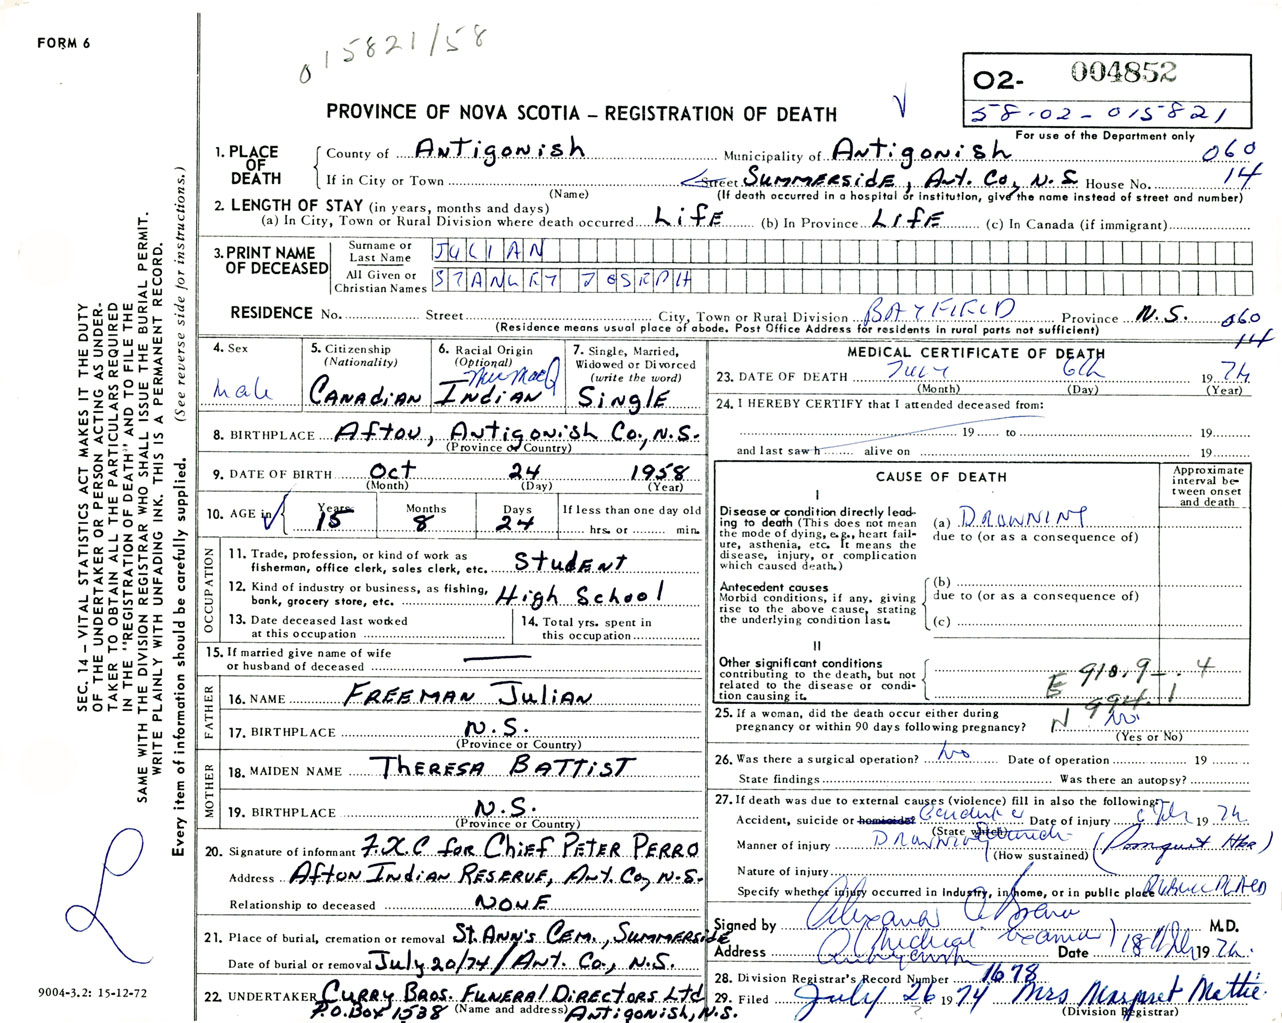 FORM 6
015821/58
O2- 004852
58-02-015821
For use of the Department only
PROVINCE OF NOVA SCOTIA – REGISTRATION OF DEATH
1. PLACE OF DEATH
County of Antigonish Municipality of Antigonish 060
If in City or Town (Name) Street Summerside, Ant. Co, N.S. House No. 14
(If death occurred in a hospital or institution, give the name instead of street and number)
2. LENGTH OF STAY (in years, months and days)
(a) In City, Town or Rural Division where death occurred Life (b) In Province Life (c) In Canada (if immigrant)
3. PRINT NAME OF DECEASED
Surname or Last Name JULIAN
All Given or Christian Names STANLEY JOSEPH
RESIDENCE No. Street City, Town or Rural Division BAYFIELD Province N.S. 060
(Residence means usual place of abode. Post Office Address for residents in rural parts not sufficient) 14
4. Sex male
5. Citizenship (Nationality) Canadian
6. Racial Origin (Optional) Indian
7. Single, Married, Widowed or Divorced (write the word) Single
8. BIRTHPLACE Afton, Antigonish Co., N.S.
(Province or Country)
9. DATE OF BIRTH Oct 24 1958
(Month) (Day) (Year)
10. AGE in Years 15 Months 8 Days 24 If less than one day old hrs. or min.
OCCUPATION
11. Trade, profession, or kind of work as fisherman, office clerk, sales clerk, etc. Student
12. Kind of industry or business, as fishing, bank, grocery store, etc. High School
13. Date deceased last worked at this occupation
14. Total yrs. spent in this occupation
15. If married give name of wife or husband of deceased —
FATHER
16. NAME Freeman Julian
17. BIRTHPLACE N.S.
(Province or Country)
MOTHER
18. MAIDEN NAME Theresa Battist
19. BIRTHPLACE N.S.
(Province or Country)
20. Signature of informant F.X.C for Chief Peter Perro
Address Afton Indian Reserve, Ant. Co, N.S.
Relationship to deceased NONE
21. Place of burial, cremation or removal St. Ann's Cem., Summerside
Date of burial or removal July 20/74 / Ant. Co., N.S.
22. UNDERTAKER Curry Bros. Funeral Directors Ltd
P.O. Box 1538 (Name and address) Antigonish, N.S.
MEDICAL CERTIFICATE OF DEATH
23. DATE OF DEATH July 6th 1974
(Month) (Day) (Year)
24. I HEREBY CERTIFY that I attended deceased from:
19 to 19
and last saw h alive on 19
CAUSE OF DEATH
Approximate interval between onset and death
I
Disease or condition directly leading to death (This does not mean the mode of dying, e.g., heart failure, asthenia, etc. It means the disease, injury, or complication which caused death.)
(a) DROWNING
due to (or as a consequence of)
Antecedent causes
Morbid conditions, if any, giving rise to the above cause, stating the underlying condition last.
(b)
due to (or as a consequence of)
(c)
II
Other significant conditions contributing to the death, but not related to the disease or condition causing it.
E 910.9 - 4
N 994.1
25. If a woman, did the death occur either during pregnancy or within 90 days following pregnancy? No
(Yes or No)
26. Was there a surgical operation? No Date of operation 19
State findings Was there an autopsy?
27. If death was due to external causes (violence) fill in also the following:
Accident, suicide or homicide? (State which) Date of injury 6 July 1974
Manner of injury Drowning (How sustained) (Pomquet Hbr)
Nature of injury
Specify whether injury occurred in industry, in home, or in public place Public Place
Signed by M.D.
(Medical Examiner)
Address Antigonish Date 18 July 1974
28. Division Registrar's Record Number 1678
29. Filed July 26 1974 Mrs Margaret Mattie.
(Division Registrar)
SEC. 14 - VITAL STATISTICS ACT MAKES IT THE DUTY
OF THE UNDERTAKER OR PERSON ACTING AS UNDER-
TAKER TO OBTAIN ALL THE PARTICULARS REQUIRED
IN THE "REGISTRATION OF DEATH" AND TO FILE THE
SAME WITH THE DIVISION REGISTRAR WHO SHALL ISSUE THE BURIAL PERMIT.
WRITE PLAINLY WITH UNFADING INK. THIS IS A PERMANENT RECORD.
Every item of information should be carefully supplied. (See reverse side for instructions.)
9004-3.2: 15-12-72